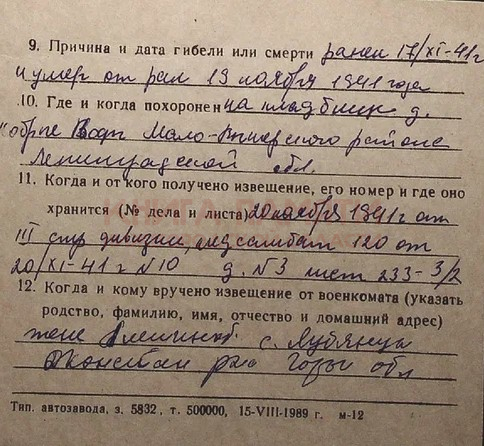 9. Причина и дата гибели или смерти ранен 17/XI-41г
и умер от ран 19 ноября 1941 года
10. Где и когда похоронен на кладбище д.
Мало-Вишерского района
Ленинградской обл.
11. Когда и от кого получено извещение, его номер и где оно
хранится (№ дела и листа) 20 ноября 1941г от
III стр дивизии, медсанбат 120 от
20/XI-41г N10 д. N3 лист 233-3/2
12. Когда и кому вручено извещение от военкомата (указать
родство, фамилию, имя, отчество и домашний адрес)
жене с.
обл
Тип. автозавода, з. 5832, т. 500000, 15-VIII-1989 г. м-12